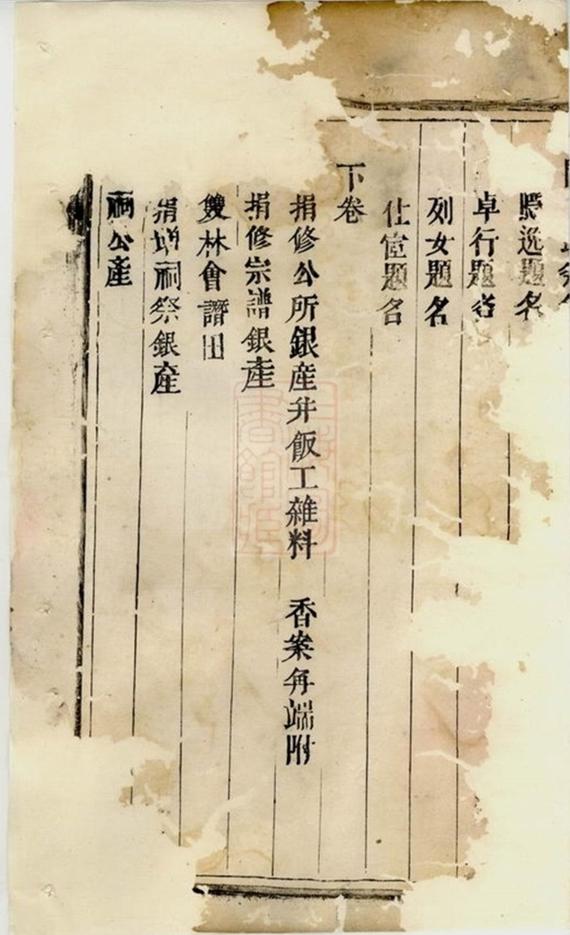 逸題名
卓行題名
列女題名
仕宦題名
下卷
捐修公所銀産并飯工雜料　香案再端附
捐修宗譜銀産
雙林會譜田
捐增祠祭銀産
祠公産